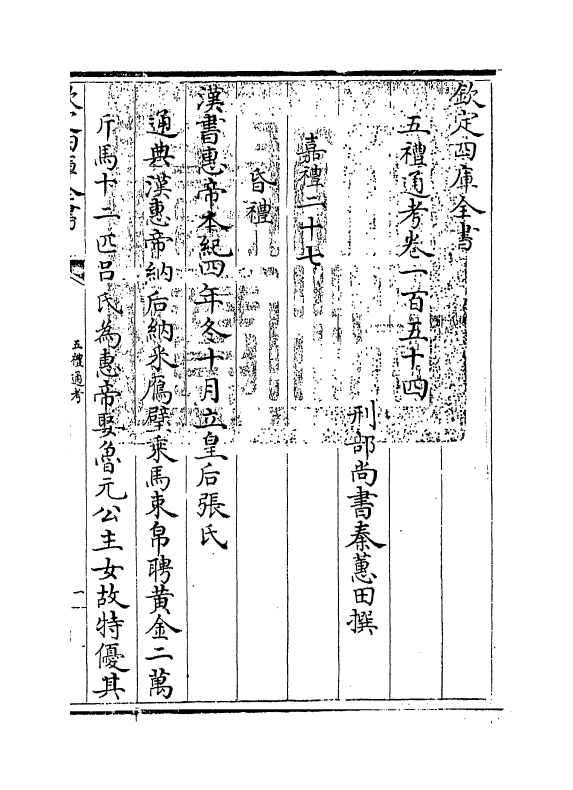 欽定四庫全書
五禮通考卷一百五十四
刑部尚書秦蕙田撰
嘉禮二十七
昏禮
漢書惠帝本紀四年冬十月立皇后張氏
通典漢惠帝納后納采鴈璧乘馬束帛聘黃金二萬
斤馬十二匹呂氏為惠帝娶魯元公主女故特優其
欽定四庫全書
五禮通考
一